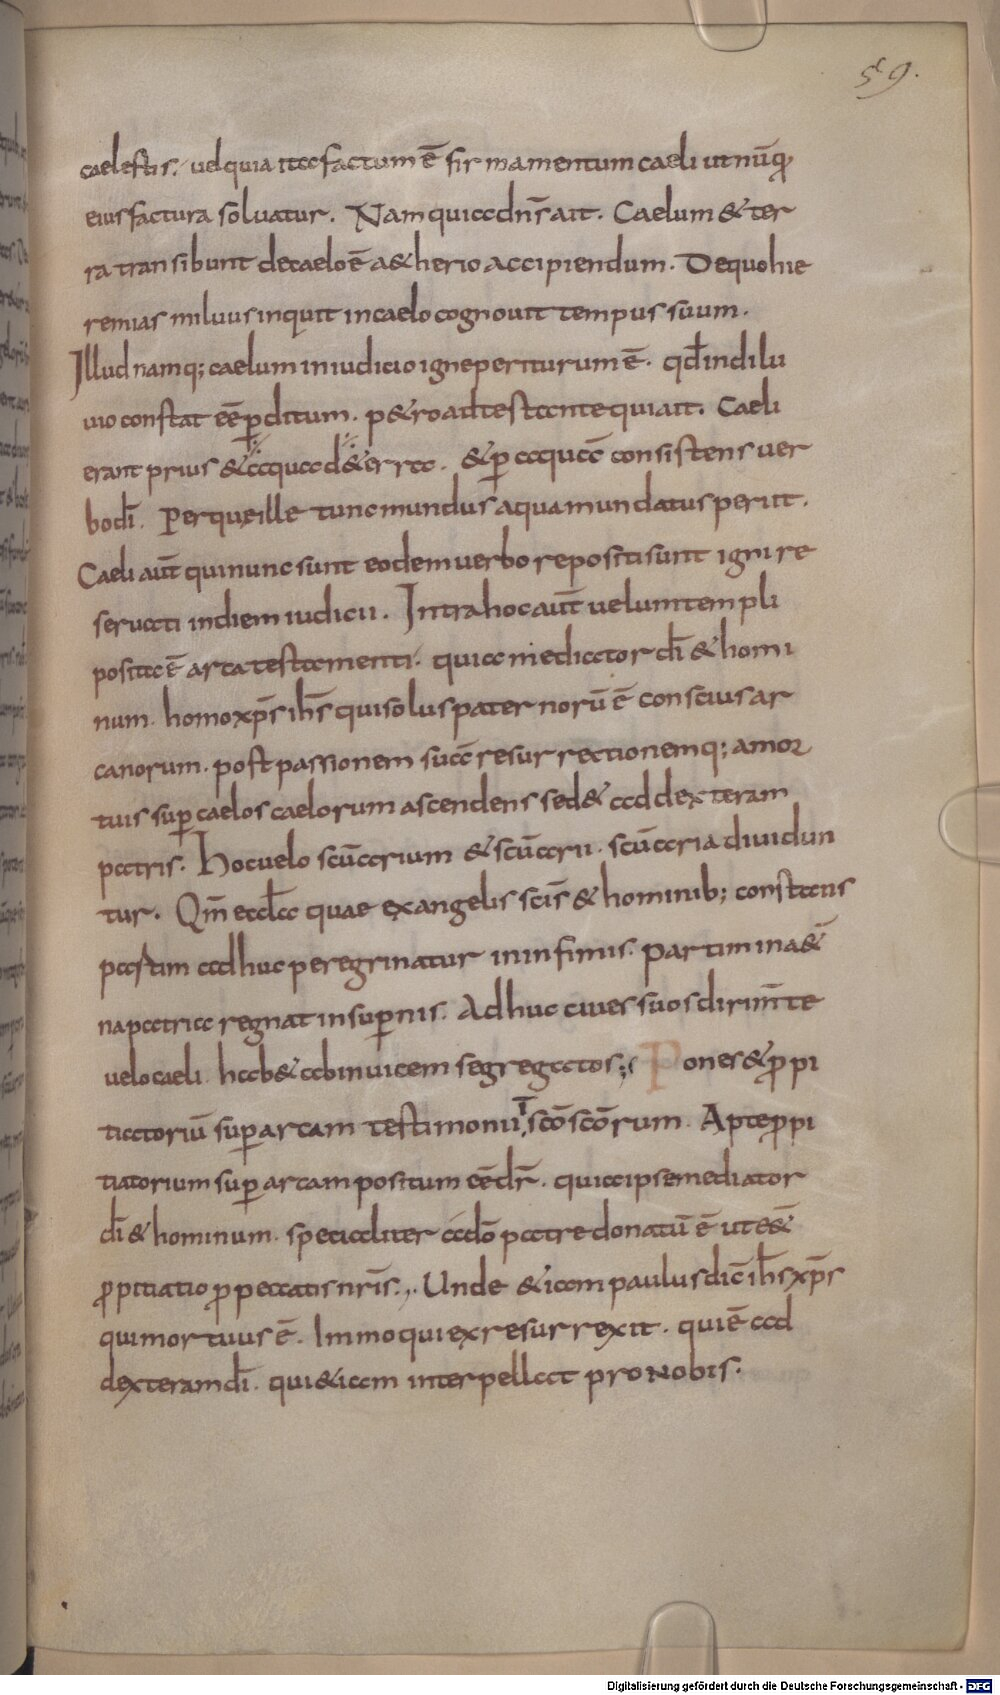 59.
caelestis. uel quia ita factum ē firmamentum caeli ut nūq
eius factura soluatur. Nam quia dn̄s ait. Caelum & ter
ra transibunt de caelo ē a&herio accipiendum. De quo hie
remias miluus inquit in caelo cognouit tempus suum.
Illud namq; caelum in iudicio igne periturum ē. qđ in dilu
uio constat eē pditum. p&ro adtestante qui ait. Caeli
erant prius & aqua d& erra. & p aquā consistens uer
bo dī. Per que ille tunc mundus aqua mundatus periit.
Caeli aūt qui nunc sunt eodem uerbo repositi sunt igni re
seruati in diem iudicii. Intra hoc aūt uelum templi
posita ē arca testamenti. quia mediator dī & homi
num. homo xp̄s ih̄s qui solus pater norū ē conscius ar
canorum. post passionem suā resurrectionemq; a mor
tuis sup caelos caelorum ascendens sed& ad dexteram
patris. Hoc uelo scūarium & scūarii. scūaria diuidun
tur. Qm̄ eccla quae ex angelis scīs & hominib; constans
partim adhuc peregrinatur in infimis. partim in a&̄
na patria regnat in supernis. Adhuc ciues suos dirimēte
uelo caeli. hab& ab inuicem segregatos; Pones & ppi
tiatoriū sup arcam testimonii T scō scōrum. Apte ppi
tiatorium sup arcam positum eē dr̄. quia ipse mediator
dī & hominum. specialiter a dō patre donatū ē ut e&̄
ppitiatio p peccatis nr̄is. Unde & iam paulus dic̄ ih̄s xp̄s
qui mortuus ē. Immo qui ex resurrexit. qui ē ad
dexteram dī. qui & iam interpellat pro nobis.
Digitalisierung gefördert durch die Deutsche Forschungsgemeinschaft - DFG